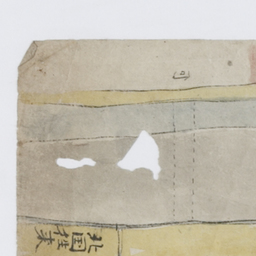 北国往来